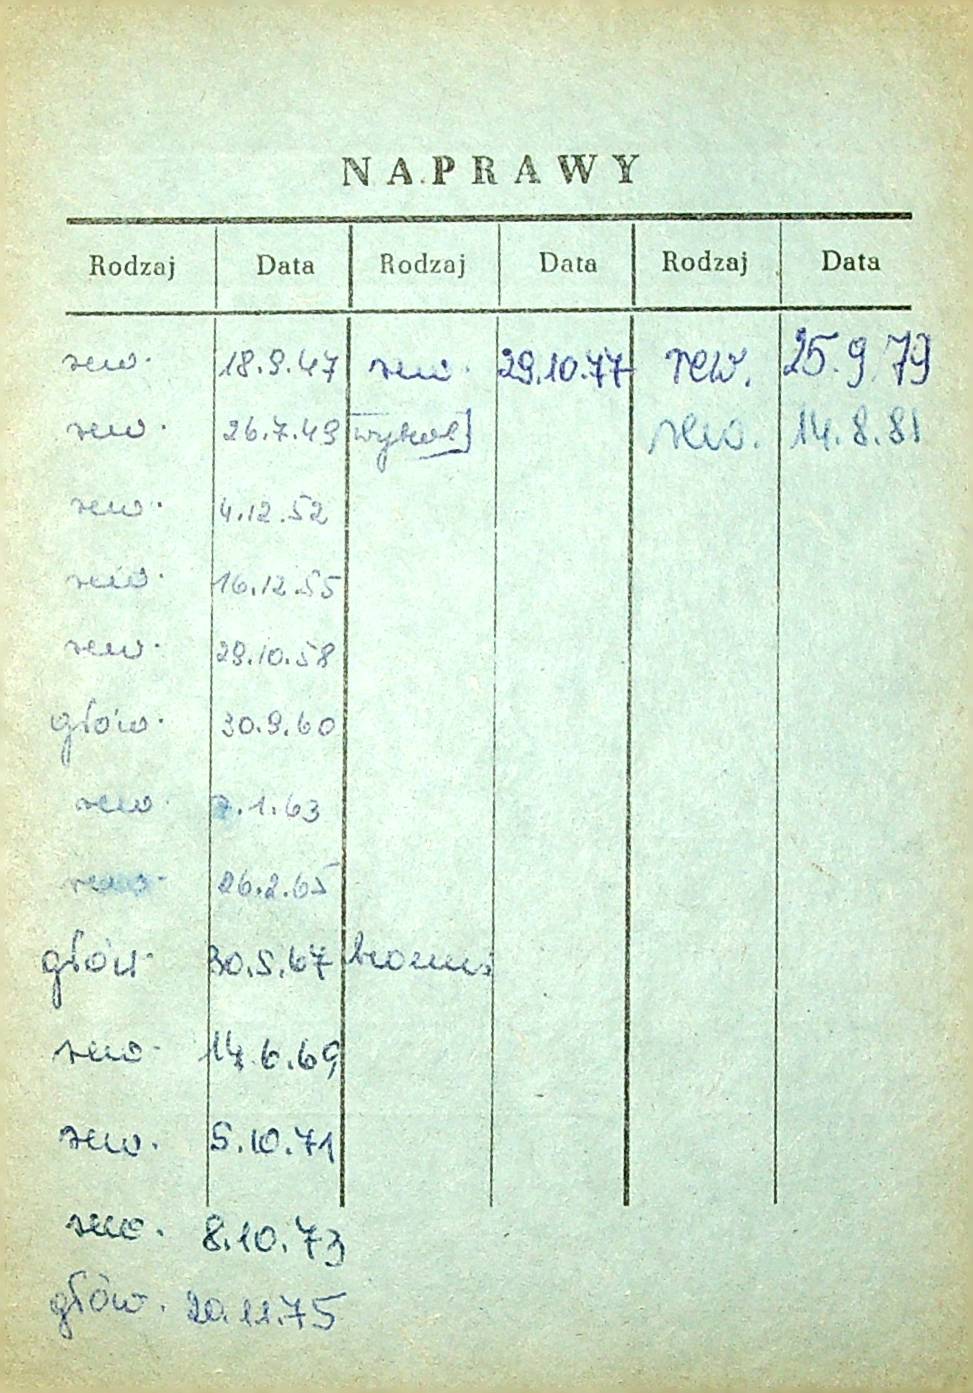 NAPRAWY
Rodzaj Data Rodzaj Data Rodzaj Data
rew. 18.9.47 rew. 29.10.77 rew. 25.9.79
rew. 26.7.49 rew. 14.8.81
rew. 4.12.52
rew. 16.12.55
rew. 29.10.58
głów. 30.9.60
rew. 7.1.63
rew. 26.2.65
głów. 30.5.67
rew. 14.6.69
rew. 5.10.71
rew. 8.10.73
głów. 20.11.75